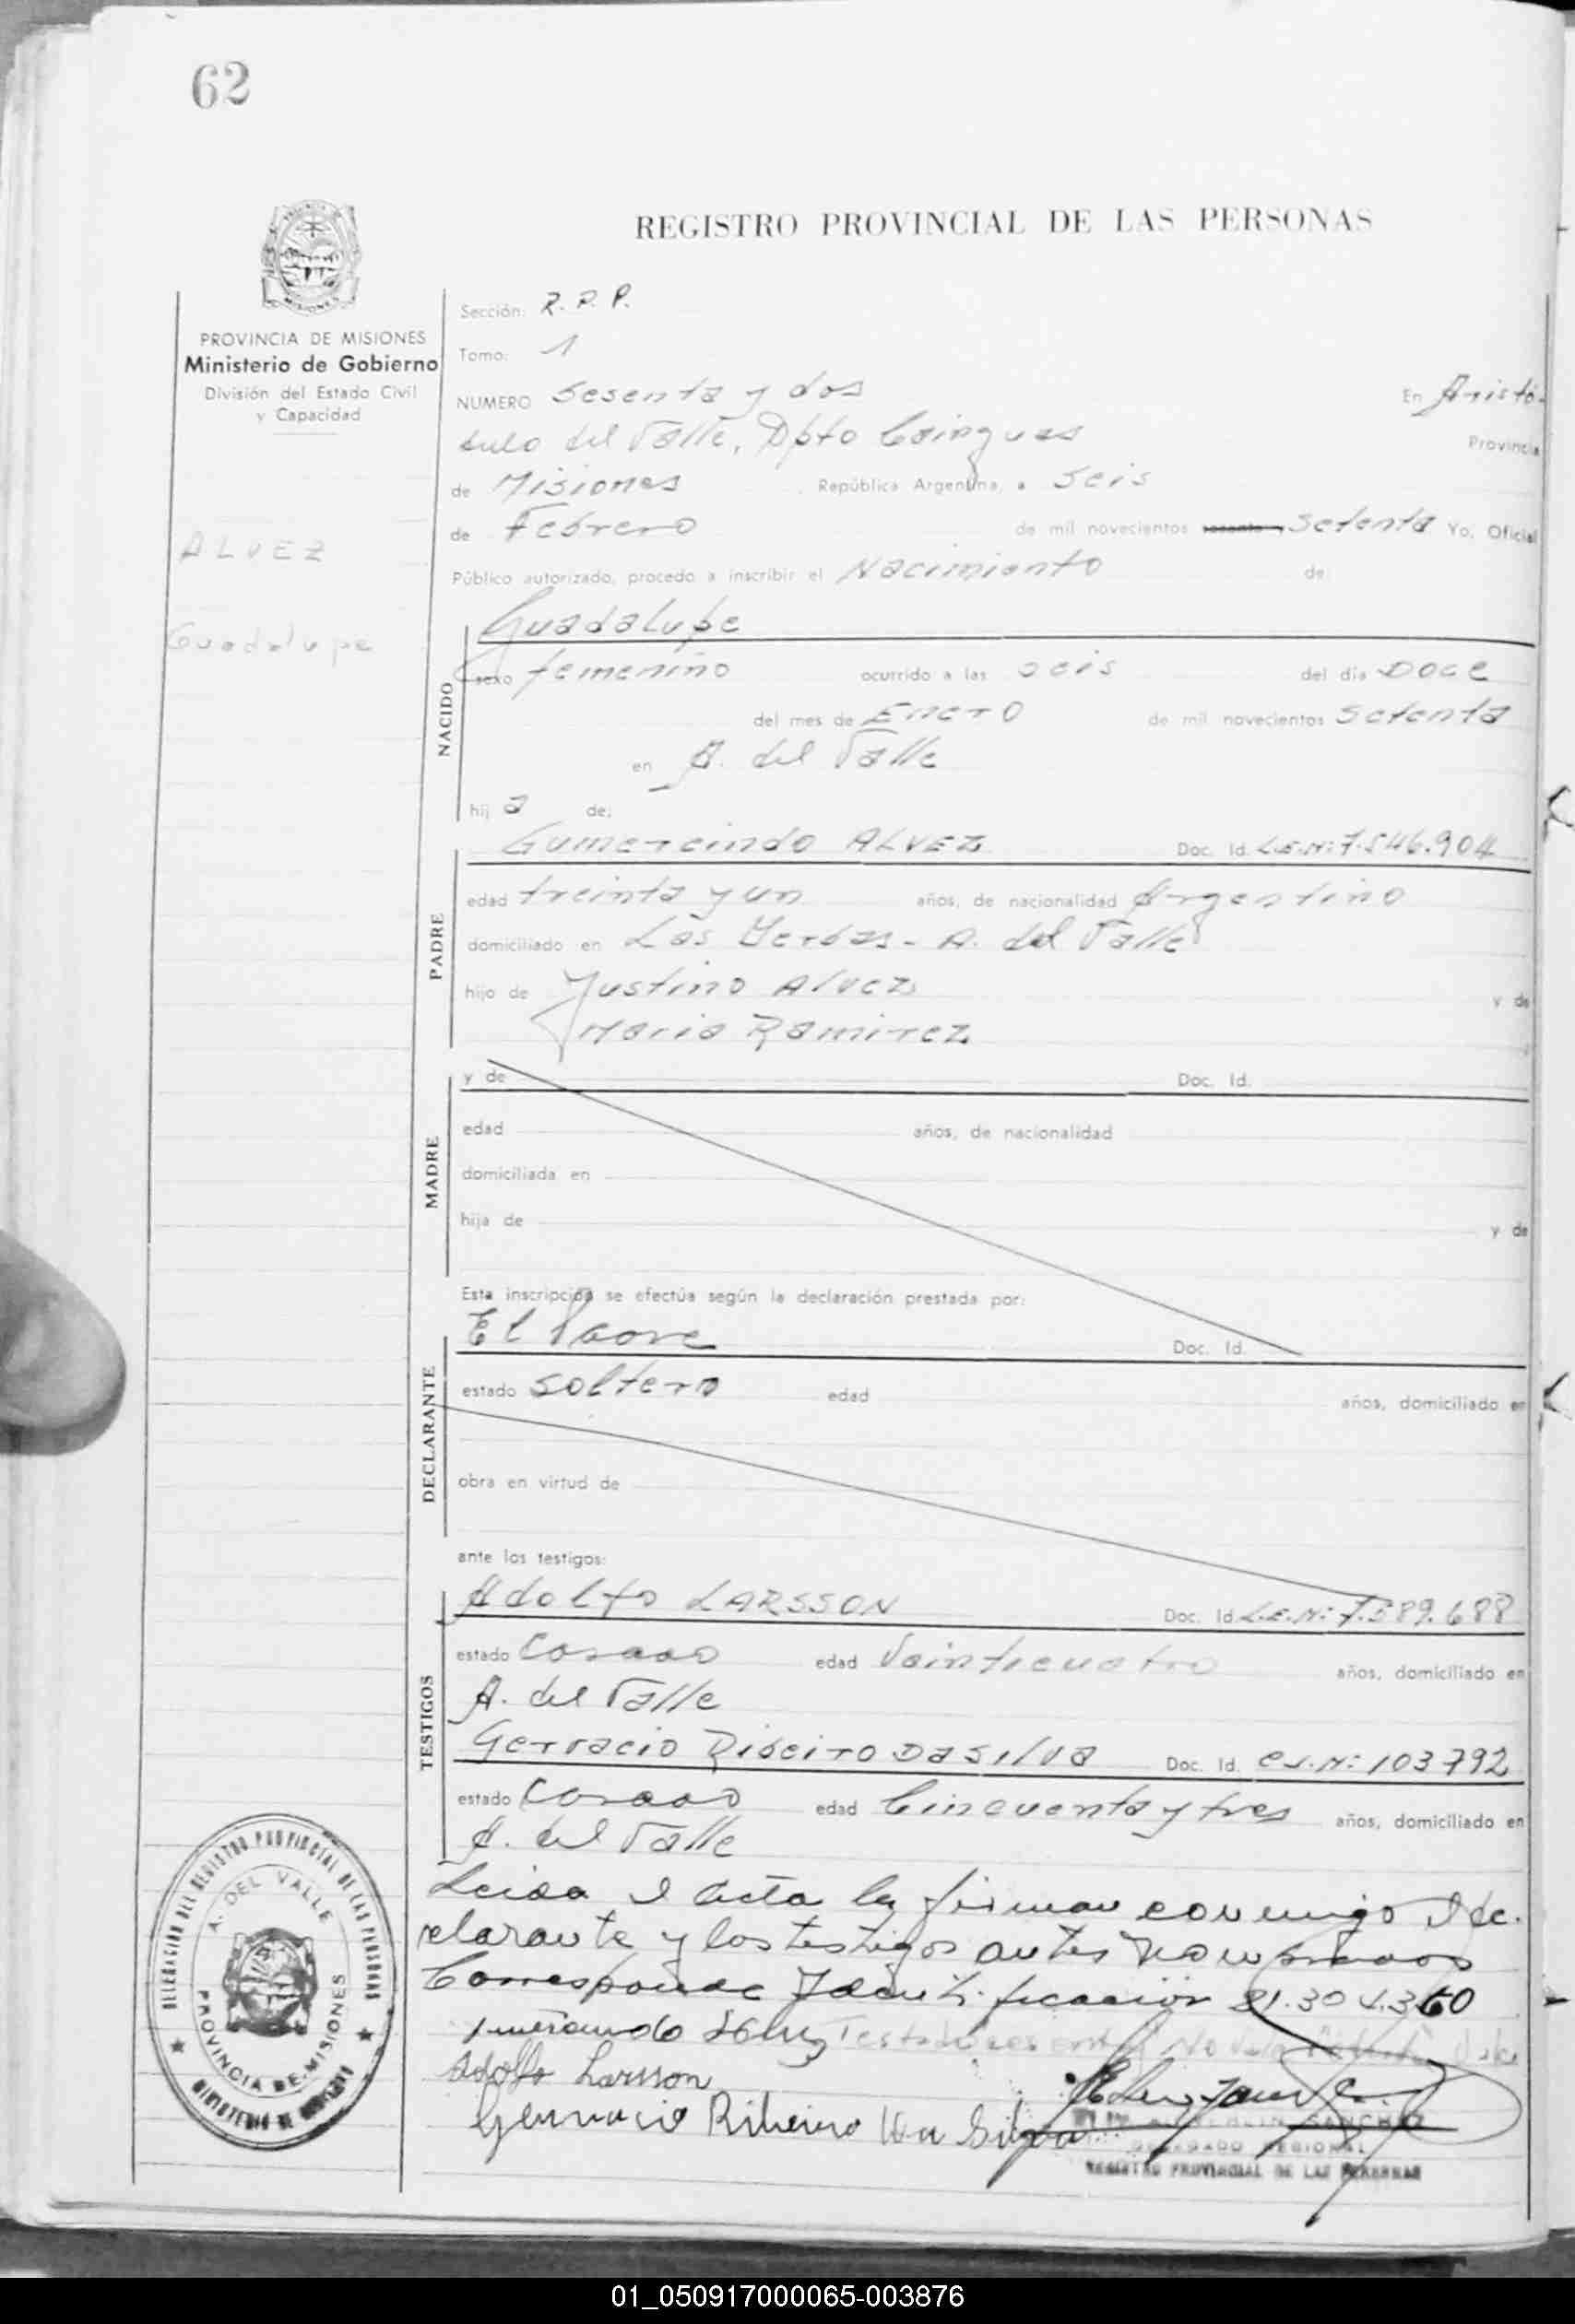 62
REGISTRO PROVINCIAL DE LAS PERSONAS
MISIONES
PROVINCIA DE MISIONES
Ministerio de Gobierno
División del Estado Civil
y Capacidad
ALVEZ
Guadalupe
Sección: R. P. P.
Tomo: 1
NUMERO Sesenta y dos En Aristó-
bulo del Valle, Dpto Cainguas Provincia
de Misiones República Argentina, a Seis
de Febrero de mil novecientos sesenta y Setenta Yo, Oficial
Público autorizado, procedo a inscribir el Nacimiento de
Guadalupe
NACIDO
sexo femenino ocurrido a las seis del día Doce
del mes de Enero de mil novecientos Setenta
en A. del Valle
hij a de:
Gumercindo ALVEZ Doc. Id. L.E.Nº: 7.546.904
PADRE
edad treinta y un años, de nacionalidad Argentino
domiciliado en Las Yerbas - A. del Valle
hijo de Justino Alvez y de
Maria Ramirez
MADRE
y de Doc. Id.
edad años, de nacionalidad
domiciliada en
hija de y de
Esta inscripción se efectúa según la declaración prestada por:
El Padre Doc. Id.
DECLARANTE
estado Soltero edad años, domiciliado en
obra en virtud de
ante los testigos:
Adolfo LARSSON Doc. Id. L.E.Nº: 7.589.688
TESTIGOS
estado Casado edad Veinticuatro años, domiciliado en
A. del Valle
Gervacio Ribeiro Da Silva Doc. Id. C.I.Nº: 103792
estado Casado edad Cincuenta y tres años, domiciliado en
A. del Valle
Leida el acta la firman conmigo el de-
clarante y los testigos antes nombrados
Corresponde Identificación 21.30
Adolfo Larsson
Gervacio Ribeiro Da Silva
SANCHEZ
DELEGADO REGIONAL
REGISTRO PROVINCIAL DE LAS PERSONAS
DELEGACION DEL REGISTRO PROVINCIAL DE LAS PERSONAS
A. DEL VALLE
PROVINCIA DE MISIONES
MINISTERIO DE GOBIERNO
01_050917000065-003876